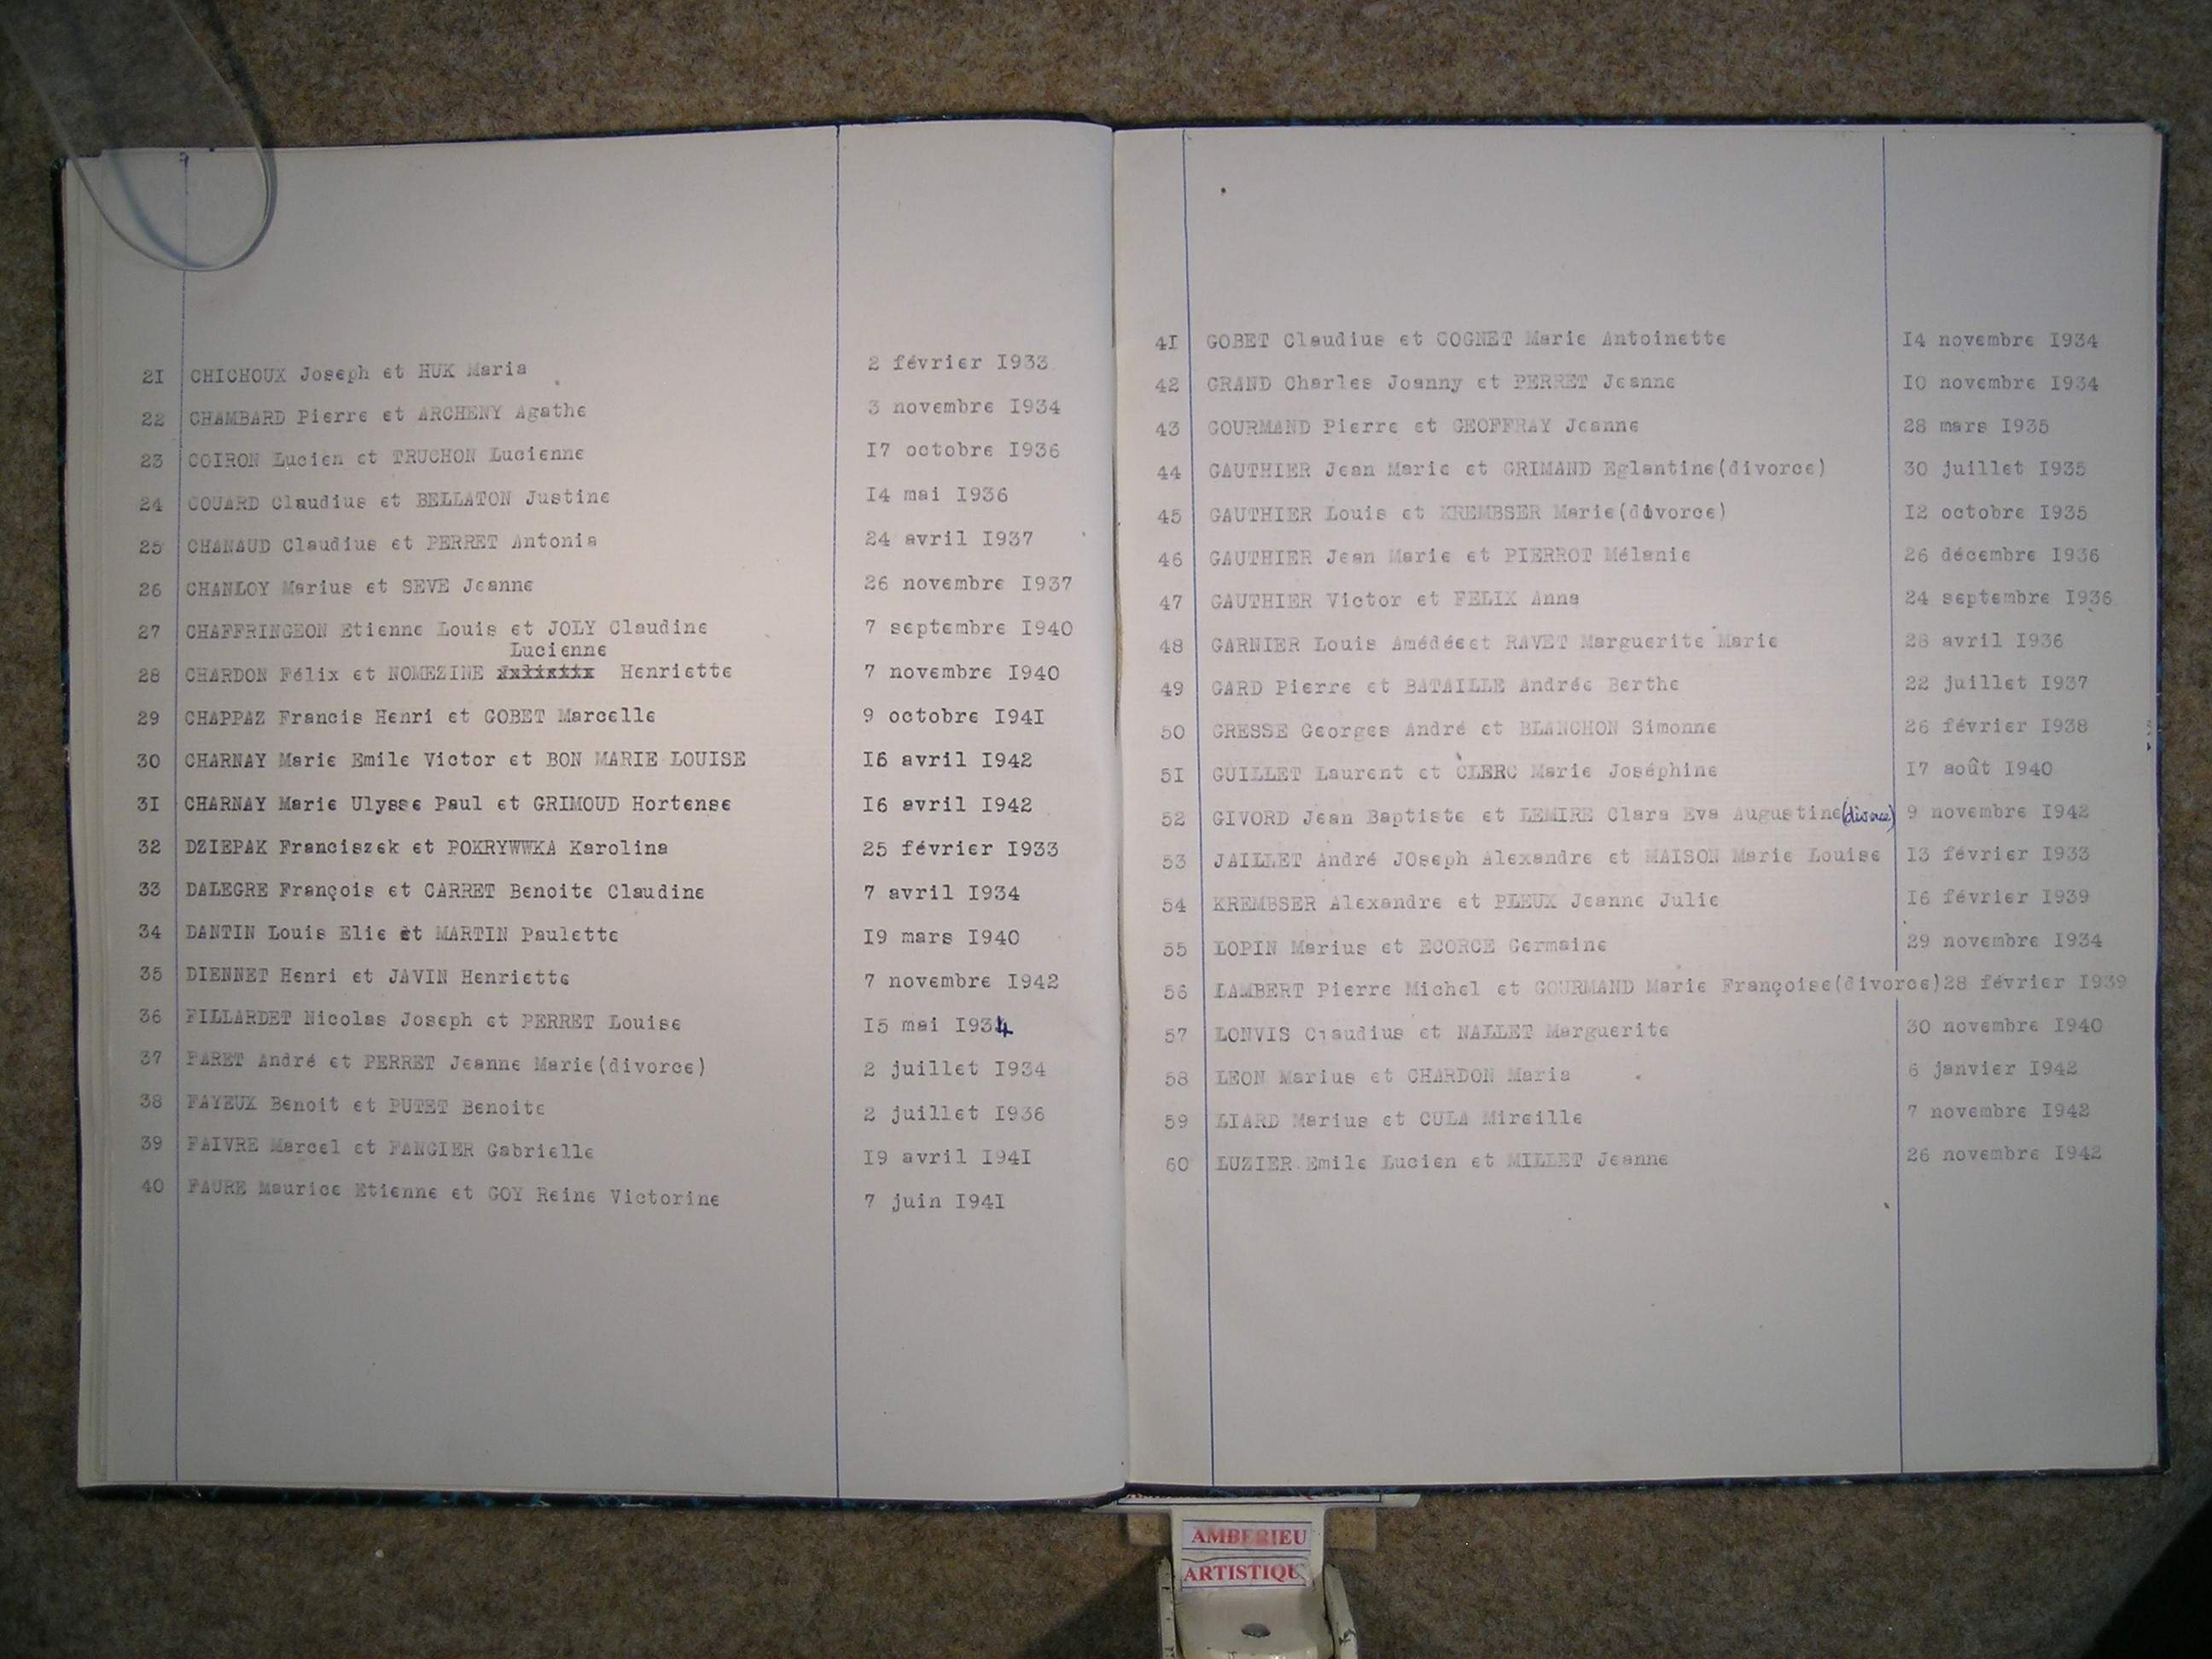 21 CHICHOUX Joseph et HUK Maria 2 février I933
22 CHAMBARD Pierre et ARCHENY Agathe 3 novembre I934
23 COIRON Lucien et TRUCHON Lucienne I7 octobre I936
24 COUARD Claudius et BELLATON Justine I4 mai I936
25 CHANAUD Claudius et PERRET Antonia 24 avril I937
26 CHANLOY Marius et SEVE Jeanne 26 novembre I937
27 CHAFFRINGEON Etienne Louis et JOLY Claudine 7 septembre I940
Lucienne
28 CHARDON Félix et NOMEZINE Henriette 7 novembre I940
29 CHAPPAZ Francis Henri et GOBET Marcelle 9 octobre I94I
30 CHARNAY Marie Emile Victor et BON MARIE LOUISE I6 avril I942
3I CHARNAY Marie Ulysse Paul et GRIMOUD Hortense I6 avril I942
32 DZIEPAK Franciszek et POKRYWWKA Karolina 25 février I933
33 DALEGRE François et CARRET Benoite Claudine 7 avril I934
34 DANTIN Louis Elie et MARTIN Paulette I9 mars I940
35 DIENNET Henri et JAVIN Henriette 7 novembre I942
36 FILLARDET Nicolas Joseph et PERRET Louise I5 mai I934
37 FARET André et PERRET Jeanne Marie(divorce) 2 juillet I934
38 FAYEUX Benoit et PUTET Benoite 2 juillet I936
39 FAIVRE Marcel et FANGIER Gabrielle I9 avril I94I
40 FAURE Maurice Etienne et GOY Reine Victorine 7 juin I94I
4I GOBET Claudius et COGNET Marie Antoinette I4 novembre I934
42 GRAND Charles Joanny et PERRET Jeanne I0 novembre I934
43 GOURMAND Pierre et GEOFFRAY Jeanne 28 mars I935
44 GAUTHIER Jean Marie et GRIMAND Eglantine(divorce) 30 juillet I935
45 GAUTHIER Louis et KREMBSER Marie(divorce) I2 octobre I935
46 GAUTHIER Jean Marie et PIERROT Mélanie 26 décembre I936
47 GAUTHIER Victor et FELIX Anna 24 septembre I936
48 GARNIER Louis Amédéeet RAVET Marguerite Marie 28 avril I936
49 GARD Pierre et BATAILLE Andrée Berthe 22 juillet I937
50 GRESSE Georges André et BLANCHON Simonne 26 février I938
5I GUILLET Laurent et CLERC Marie Joséphine I7 août I940
52 GIVORD Jean Baptiste et LEMIRE Clara Eva Augustine(divorce) 9 novembre I942
53 JAILLET André JOseph Alexandre et MAISON Marie Louise I3 février I933
54 KREMBSER Alexandre et PLEUX Jeanne Julie I6 février I939
55 LOPIN Marius et ECORCE Germaine 29 novembre I934
56 LAMBERT Pierre Michel et GOURMAND Marie Françoise(divorce)28 février I939
57 LONVIS Claudius et NALLET Marguerite 30 novembre I940
58 LEON Marius et CHARDON Maria 6 janvier I942
59 LIARD Marius et CULA Mireille 7 novembre I942
60 LUZIER Emile Lucien et MILLET Jeanne 26 novembre I942
AMBERIEU
ARTISTIQU